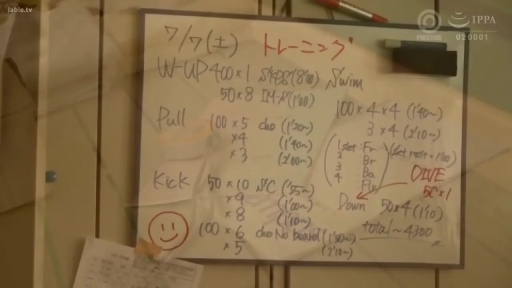 Jable.tv
IPPA
020001
7/7(土) トレーニング
W-UP 400×1
50×8 IM-S(1'00)
Pull 100×5 cho (1'30~)
×4 (1'40~)
×3 (2'00~)
Kick 50×10 SC (55~)
×9 (1'00~)
×8 (1'10~)
100×6 cho No board (1'50~)
×5 (2'10~)
Swim
100×4×4 (1'40~)
3×4 (2'10~)
1set:Fr
2 Br
3 Ba
4 Fly
DIVE
50×1
Down 50×4 (1'10)
total~4300